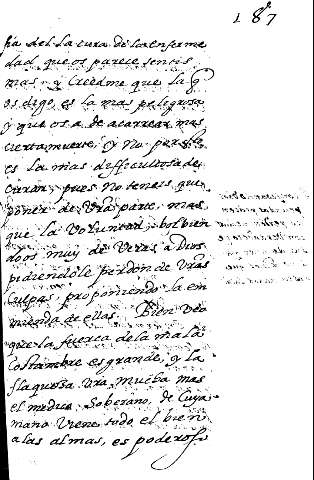 187
fia del La cura de la enferme
dad que os parece teneis
mas, y Creedme que la q̃
os digo, es la mas peligrosa
y que os a de acarrear mas
cierta muerte, y No por esso
es la mas difficultosa de
curar, pues No teneis que
poner de Vr̃a parte, mas
que la Voluntad, bolbien
doos muy de Veras a Dios
pidiendole perdon de Vr̃as
Culpas, proponiendo la em
mienda de ellas. Bien Veo
que la fuerca de la mala
Costumbre es grande, y la
flaqueza Vr̃a, mucha mas
el medico Soberano, de Cuya
mano Viene todo el bien
a las almas, es poderoso